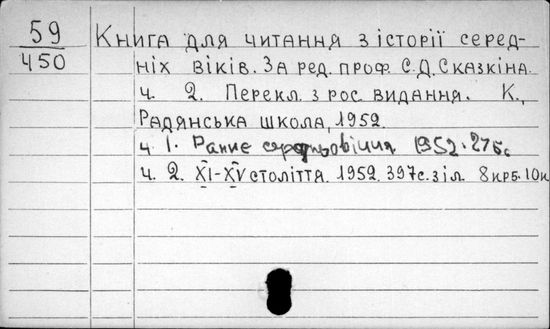 59
450
Книга для читання з історії серед-
ніх віків. За ред. проф. С.Д. Сказкіна.
ч. 2. Перекл. з рос. видання. К.,
Радянська школа, 1952.
ч. 1. Раннє середньовіччя. 1952. 276с
ч. 2. XI-XV століття. 1952. 397с. з іл. 8крб. 10к